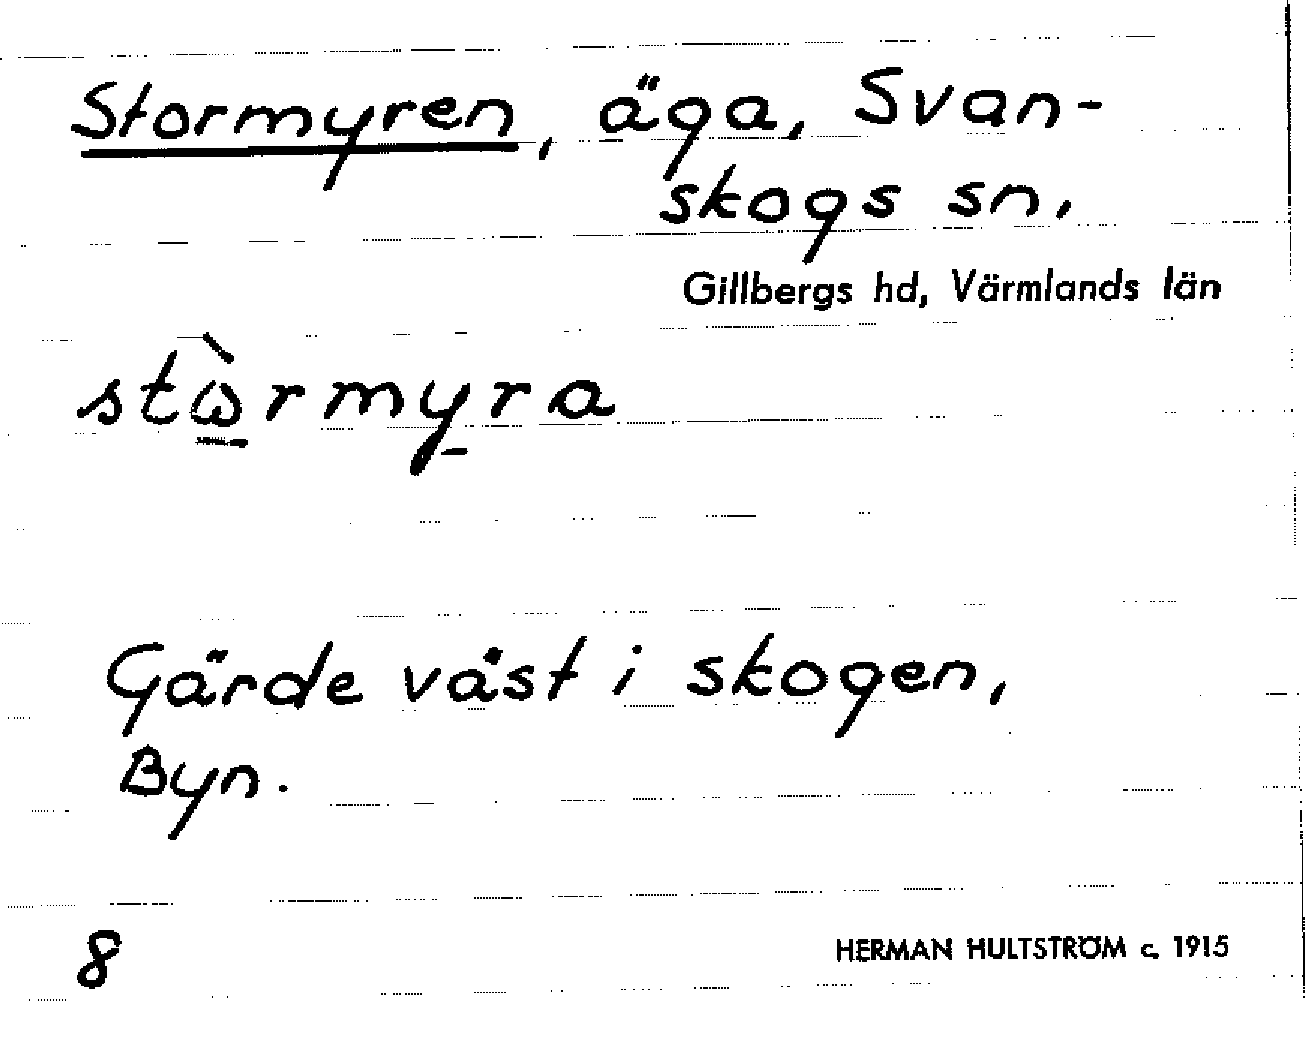 Stormyren, äga, Svan-
skogs sn,
Gillbergs hd, Värmlands län
stὼ̲rmy̲ra
Gärde väst i skogen,
Byn.
8
HERMAN HULTSTRÖM c. 1915